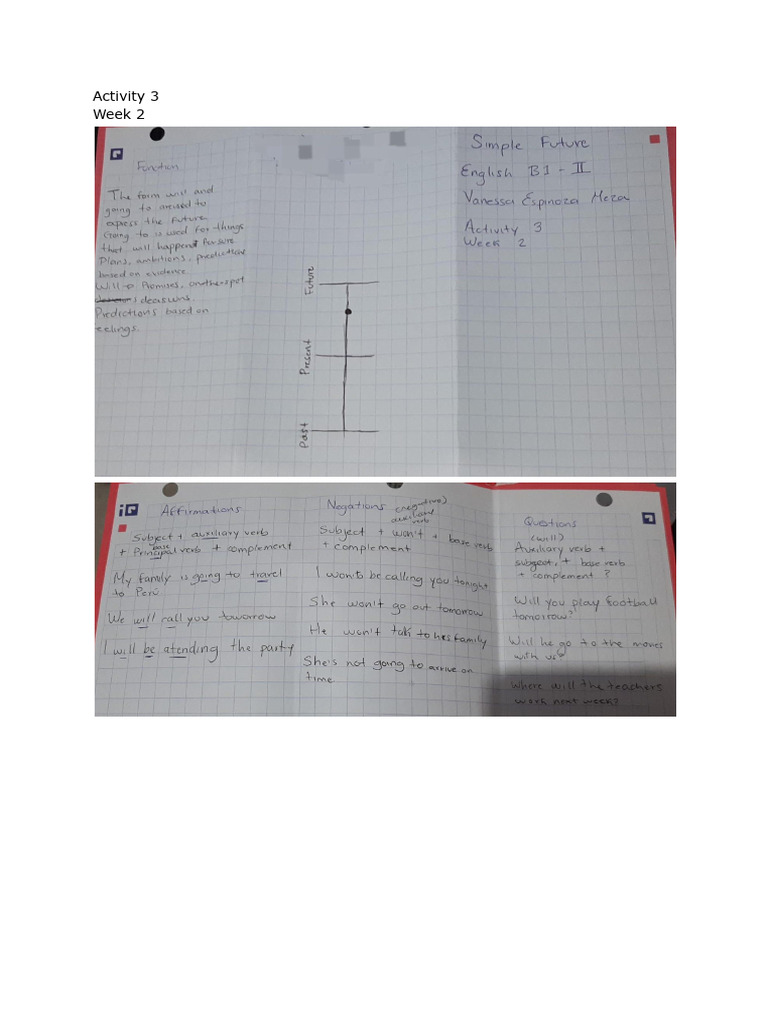 Activity 3
Week 2
Function
The form will and
going to are used to
express the future.
Going to is used for things
that will happen for sure
Plans, ambitions, predictions
based on evidence
Will → Promises, on the spot
decasions.
Predictions based on
eelings.
Future
Present
Past
Simple Future
English B1 - II
Vanessa Espinoza Meza
Activity 3
Week 2
Affirmations
Subject + auxiliary verb
base
+ Principal verb + complement
My family is going to travel
to Perú
We will call you toworrow
I will be atending the party
Negations (negative)
auxiliard
verb
Subject + won't + base verb
+ complement
I won't be calling you tonight
She won't go out tomorrow
He won't talk to hes family
She's not going to arrive on
time
Questions
(will)
Auxiliary verb +
subgect, + base verb
+ complement ?
Will you play football
tomorrow?
Will he go to the movies
with us?
Where will the teachers
work next week?